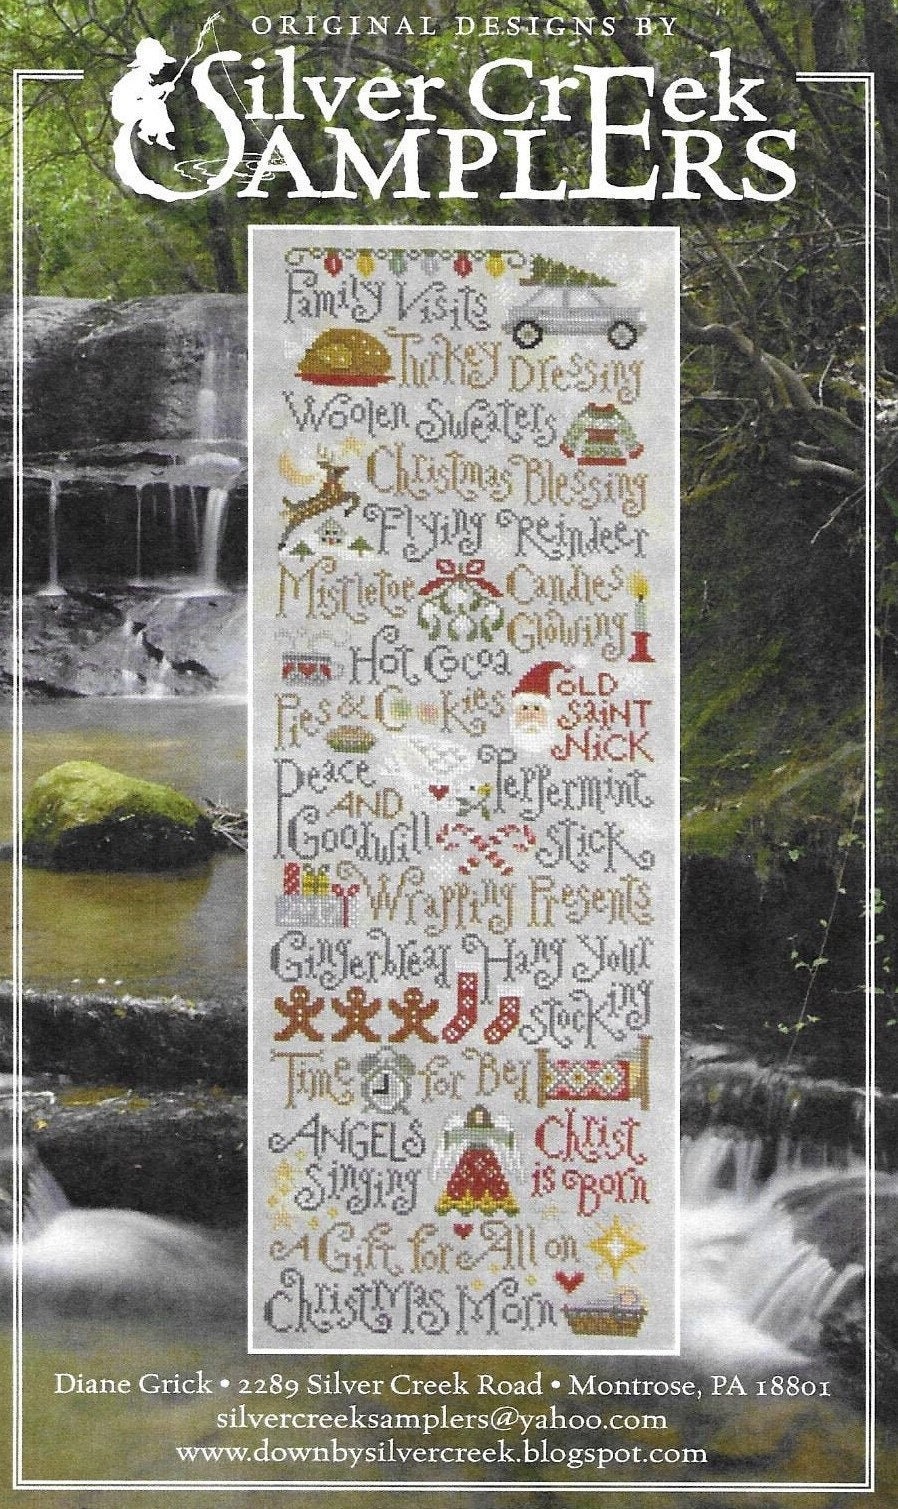 ORIGINAL DESIGNS BY
Silver CrEek
SAMPLERS
Family Visits
Turkey Dressing
Woolen Sweaters
Christmas Blessing
Flying Reindeer
Mistletoe
Candles
Glowing
Hot Cocoa
Pies & Cookies
OLD
SaiNT
NiCK
Peace
AND
Goodwill
Peppermint
Stick
Wrapping Presents
Gingerbread
Hang Your
Stocking
Time for Bed
ANGELS
Singing
Christ
is Born
A Gift for All on
Christmas Morn
Diane Grick • 2289 Silver Creek Road • Montrose, PA 18801
silvercreeksamplers@yahoo.com
www.downbysilvercreek.blogspot.com